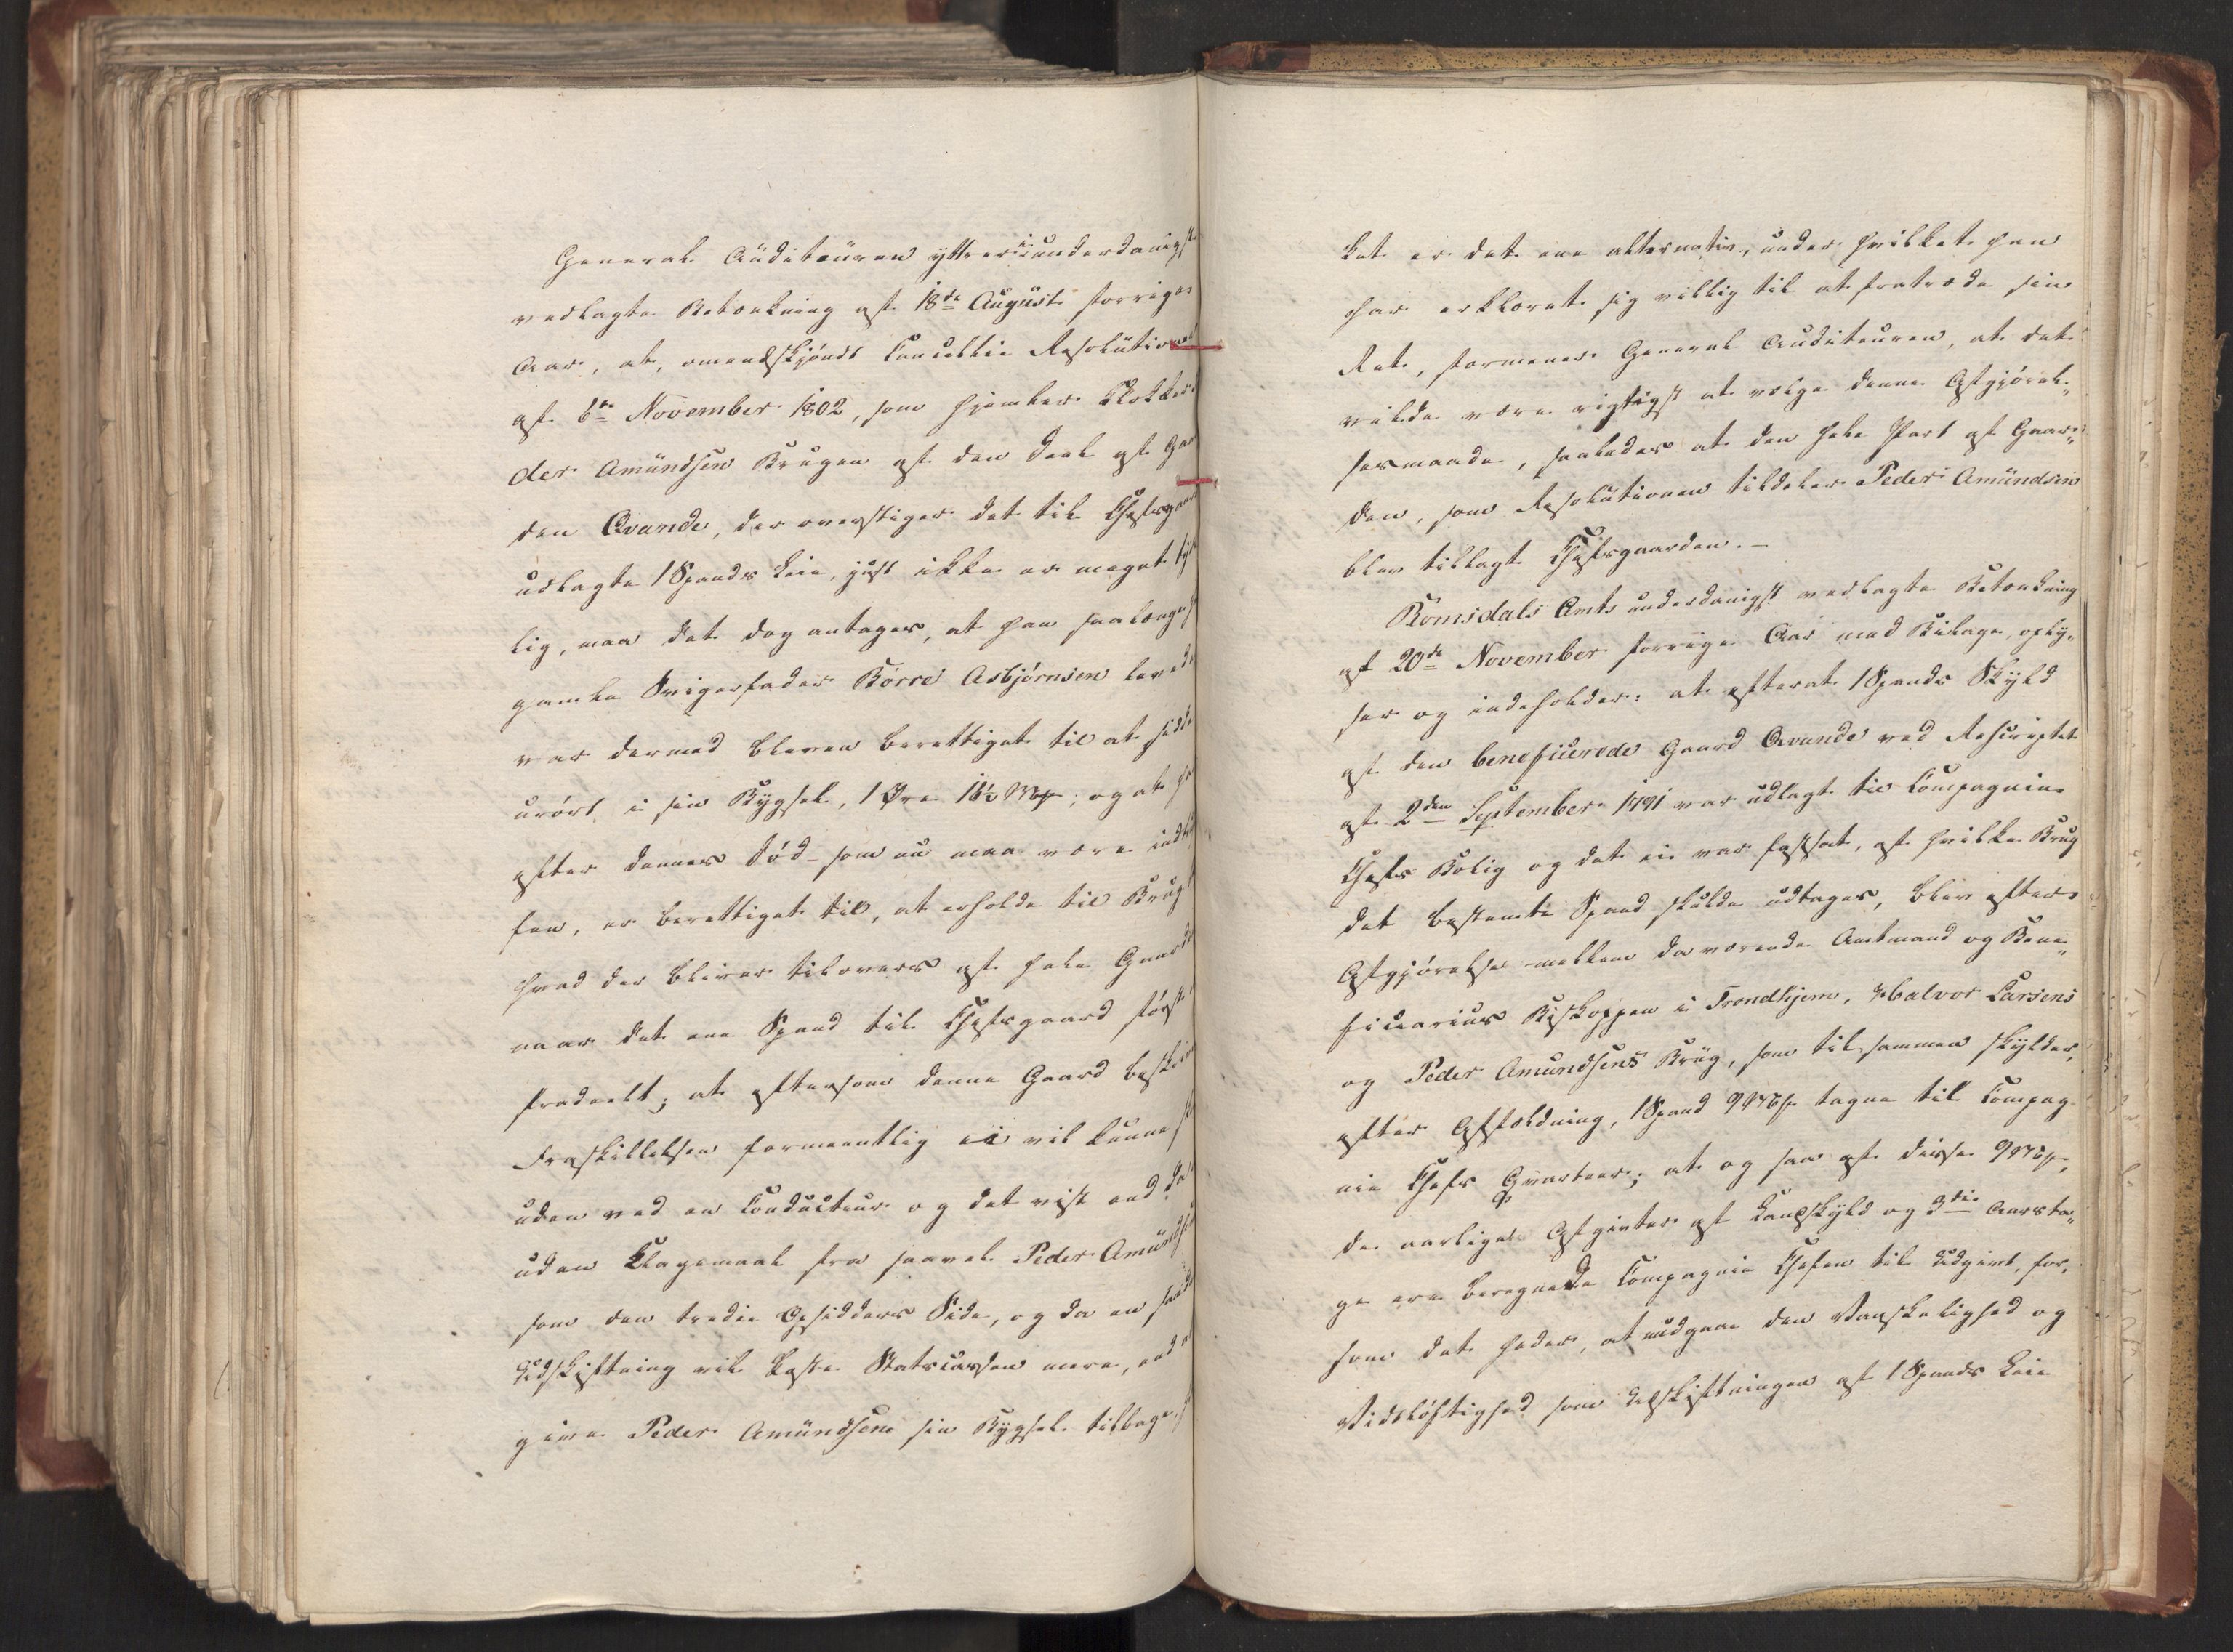 General Auditeuren yttrer i underdanigst
vedlagte Betænkning af 18de August forrige
Aar, at, omendskjøndt Cancellie Resolution
af 6te November 1802, som hjemler
der Amundsen Brugen af den Deel af Gaar
den Qvande, der overstiger det til Chefsgaard
udlagte 1 Spands Leie, just ikke er meget tyde
lig, maa det dog antages, at han saalænge
gamle Svigerfader Børre Asbjørnsen levede
var dermed bleven berettiget til at sidde
urørt i sin Bygsel, 1 Øre 16½ Mkp, og at
efter dennes Død – som nu maa være indtruf
fen, er berettiget til, at erholde til Brug
hvad der bliver tilovers af hele Gaarden
naar det ene Spand til Chefsgaard først
fradeelt; at eftersom denne Gaard
Fraskillelsen formeentlig ei vil kunne
uden ved en Conducteur og det vist end da
uden Klagemaal fra saavel Peder Amundsen
som den tredie Opsidders Side, og da en saadan
Udskiftning vil koste Statscassen mere, end
give Peder Amundsen sin Bygsel tilbage,
ket er det ene alternativ, under hvilket han
har erklæret sig villig til at fratræde sin
Ret, formener General Auditeuren, at det
vilde være rigtigst at vælge denne Afgjørel„
sesmaade, saaledes at den hele Part af Gaar„
den, som Resolutionen tildeler Peder Amundsen
blev tillagt Chefsgaarden. –
Romsdals Amts underdanigst vedlagte Betænkning
af 20de November forrige Aar med Bilage, oply„
ser og indeholder: at efterat 1 Spands Skyld
af den beneficerede Gaard Qvande ved Rescriptet
af 2den September 1791 var udlagt til Compagnie
Chefs Bolig og det ei var fastsat, af hvilke Brug
det bestemte Spand skulde udtages, blev efter
Afgjørelse mellem da værende Amtmand og Bene„
ficiarius Biskoppen i Trondhjem, Halvor Larsens
og Peder Amundsens Brug, som tilsammen skylder,
efter Affældning, 1 Spand 9 Mkp tagne til Compag„
nie Chefs Qvarteer; at og saa af disse 9 Mkp,
de aarlige Afgivter af Landskyld og 3die Aarsta„
ge ere beregnede Compagnie Chefen til Udgivt, for,
som det heder, at undgaae den Vanskelighed og
Vidtløftighed som Udskiftningen af 1 Spands Leie